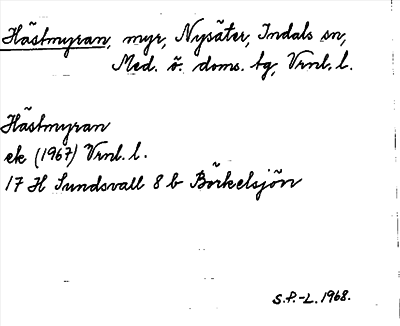 Hästmyran, myr, Nysäter, Indals sn,
Med. ö. doms. tg, Vrnl. l.
Hästmyran
ek (1967) Vrnl. l.
17 H Sundsvall 8 b Börkelsjön
S.P.-L. 1968.